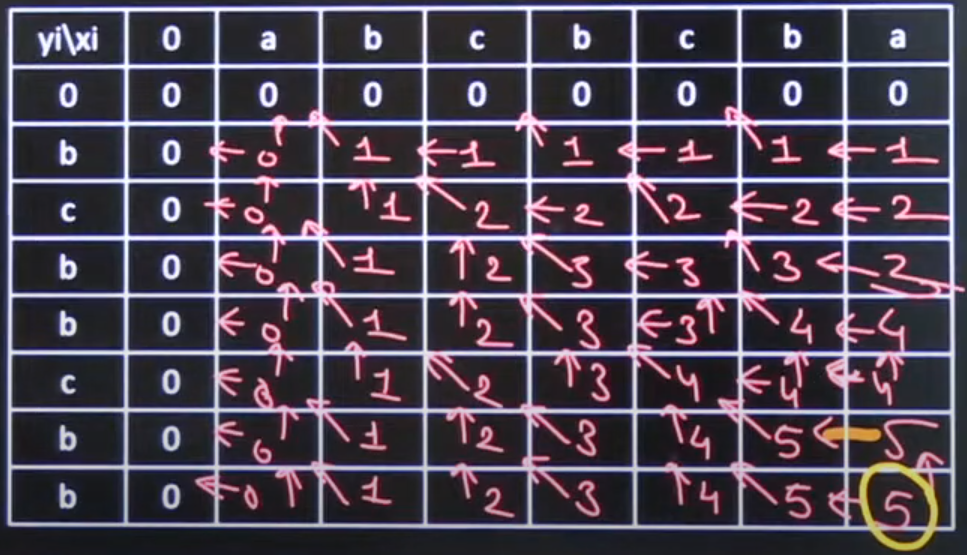 yi\xi 0 a b c b c b a
0 0 0 0 0 0 0 0 0
b 0 ←0↑ ↖1 ←1 ↖1 ←1 ↖1 ←1
c 0 ←0↑ ↑1 ↖2 ←2 ↖2 ←2 ←2
b 0 ←0↑ ↖1 ↑2 ↖3 ←3 ↖3 ←3
b 0 ←0↑ ↖1 ↑2 ↖3 ←3↑ ↖4 ←4
c 0 ←0↑ ↑1 ↖2 ↑3 ↖4 ←4↑ ←4↑
b 0 ←0↑ ↖1 ↑2 ↖3 ↑4 ↖5 ←5
b 0 ←0↑ ↖1 ↑2 ↖3 ↑4 ↖5 ←5↑